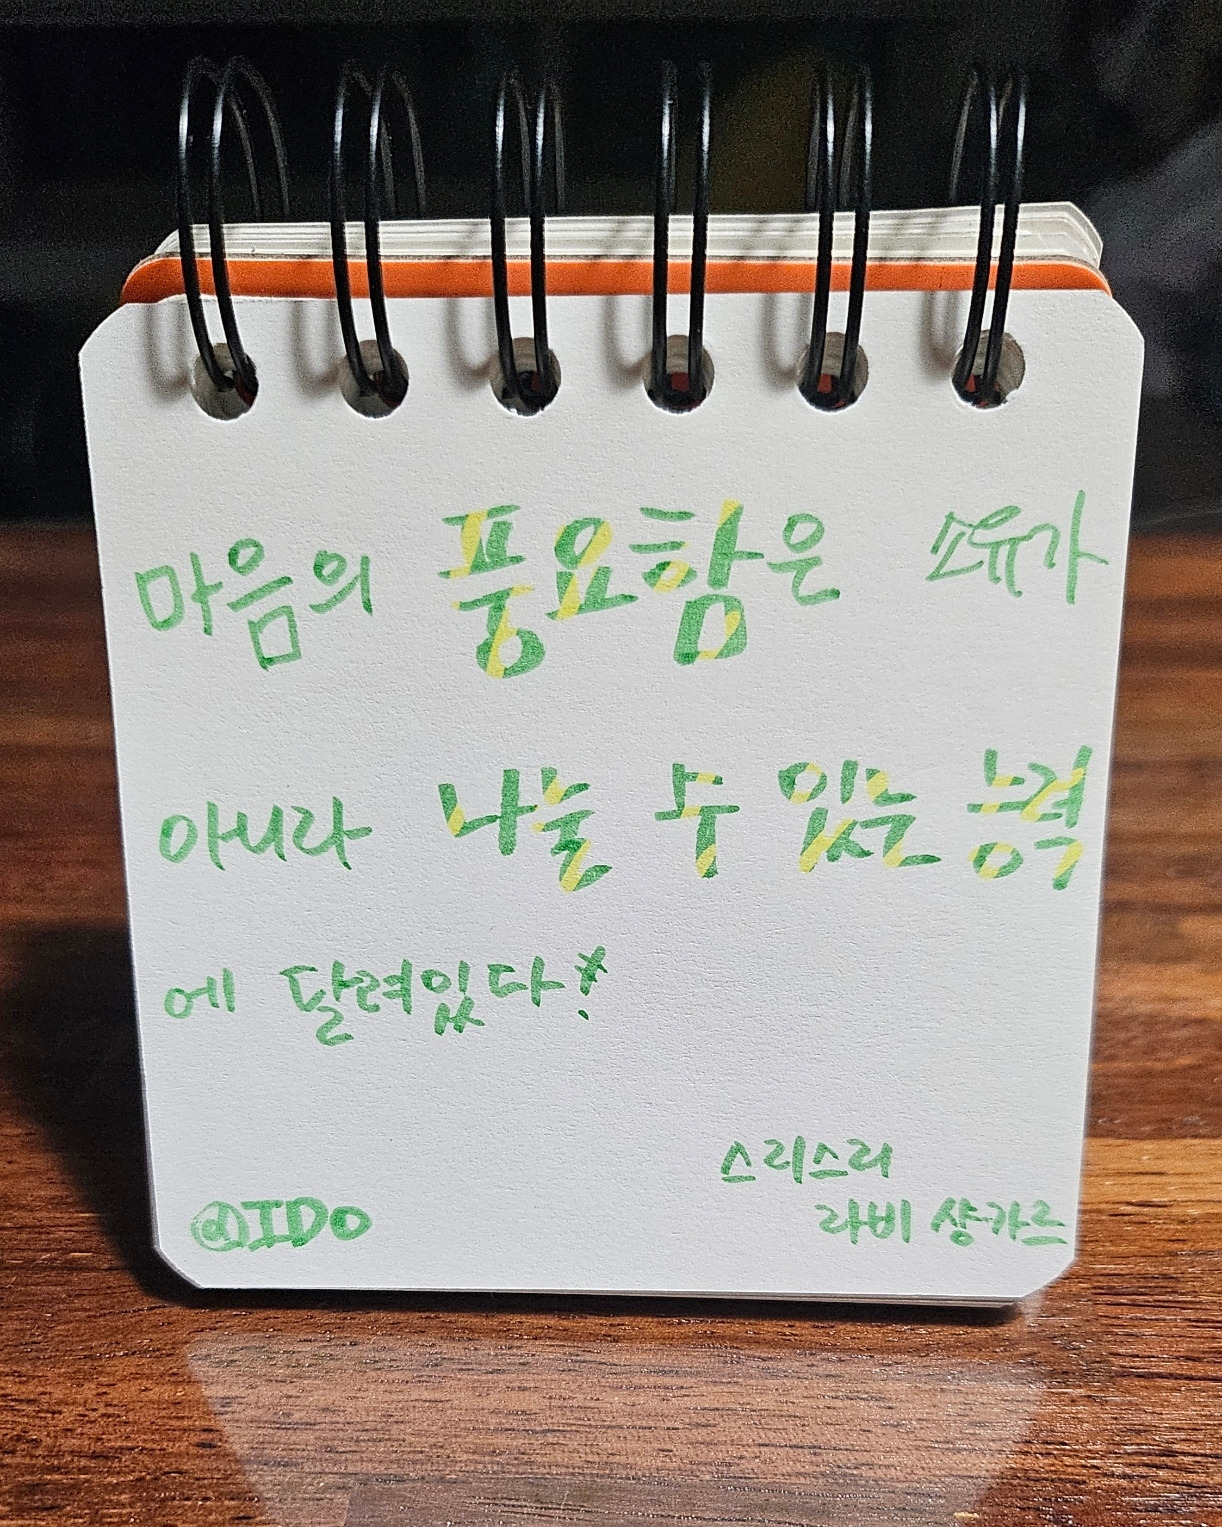 마음의 풍요함은 소유가
아니라 나눌 수 있는 능력
에 달려있다!
스리스리
라비 샹가르
@IDO